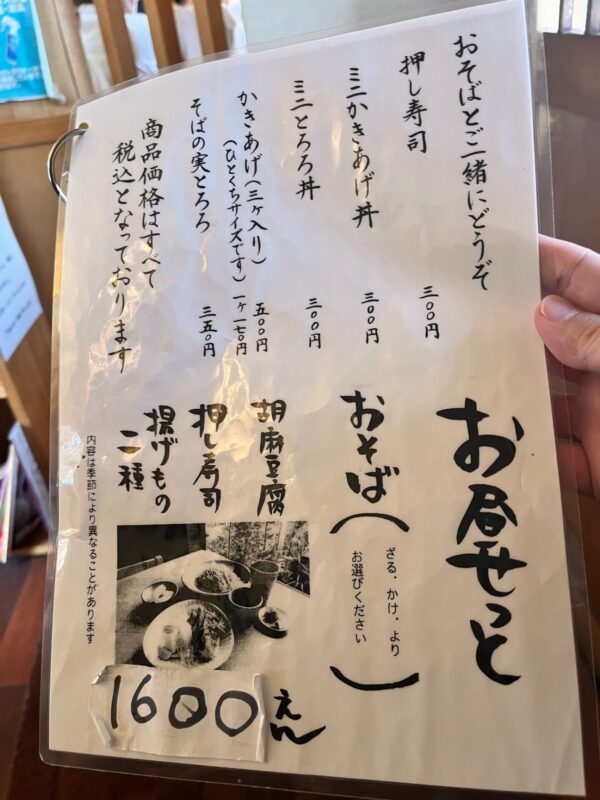 おそばとご一緒にどうぞ
押し寿司 三〇〇円
ミニかきあげ丼 三〇〇円
ミニとろろ丼 三〇〇円
かきあげ(三ヶ入り) 五〇〇円
(ひとくちサイズです) 一ヶ一七〇円
そばの実とろろ 三五〇円
商品価格はすべて
税込となっております
お昼せっと
おそば(ざる・かけ・より
お選びください)
胡麻豆腐
押し寿司
揚げもの
二種
内容は季節により異なることがあります
1600えん